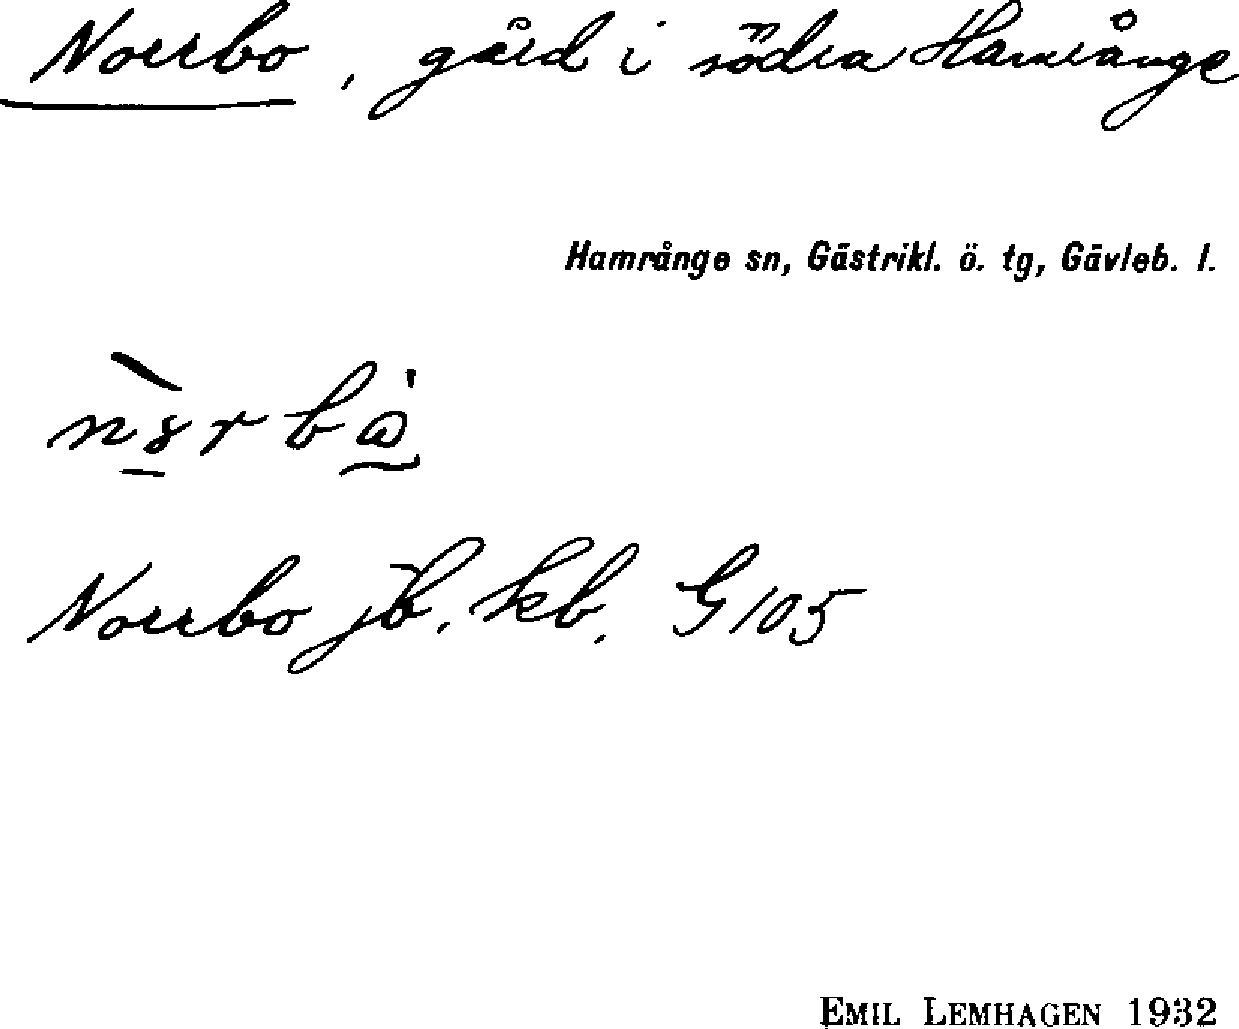 Norrbo, gård i södra Hamrånge
Hamrånge sn, Gästrikl. ö. tg, Gävleb. l.
Norrbo jb. kb. G105
EMIL LEMHAGEN 1932